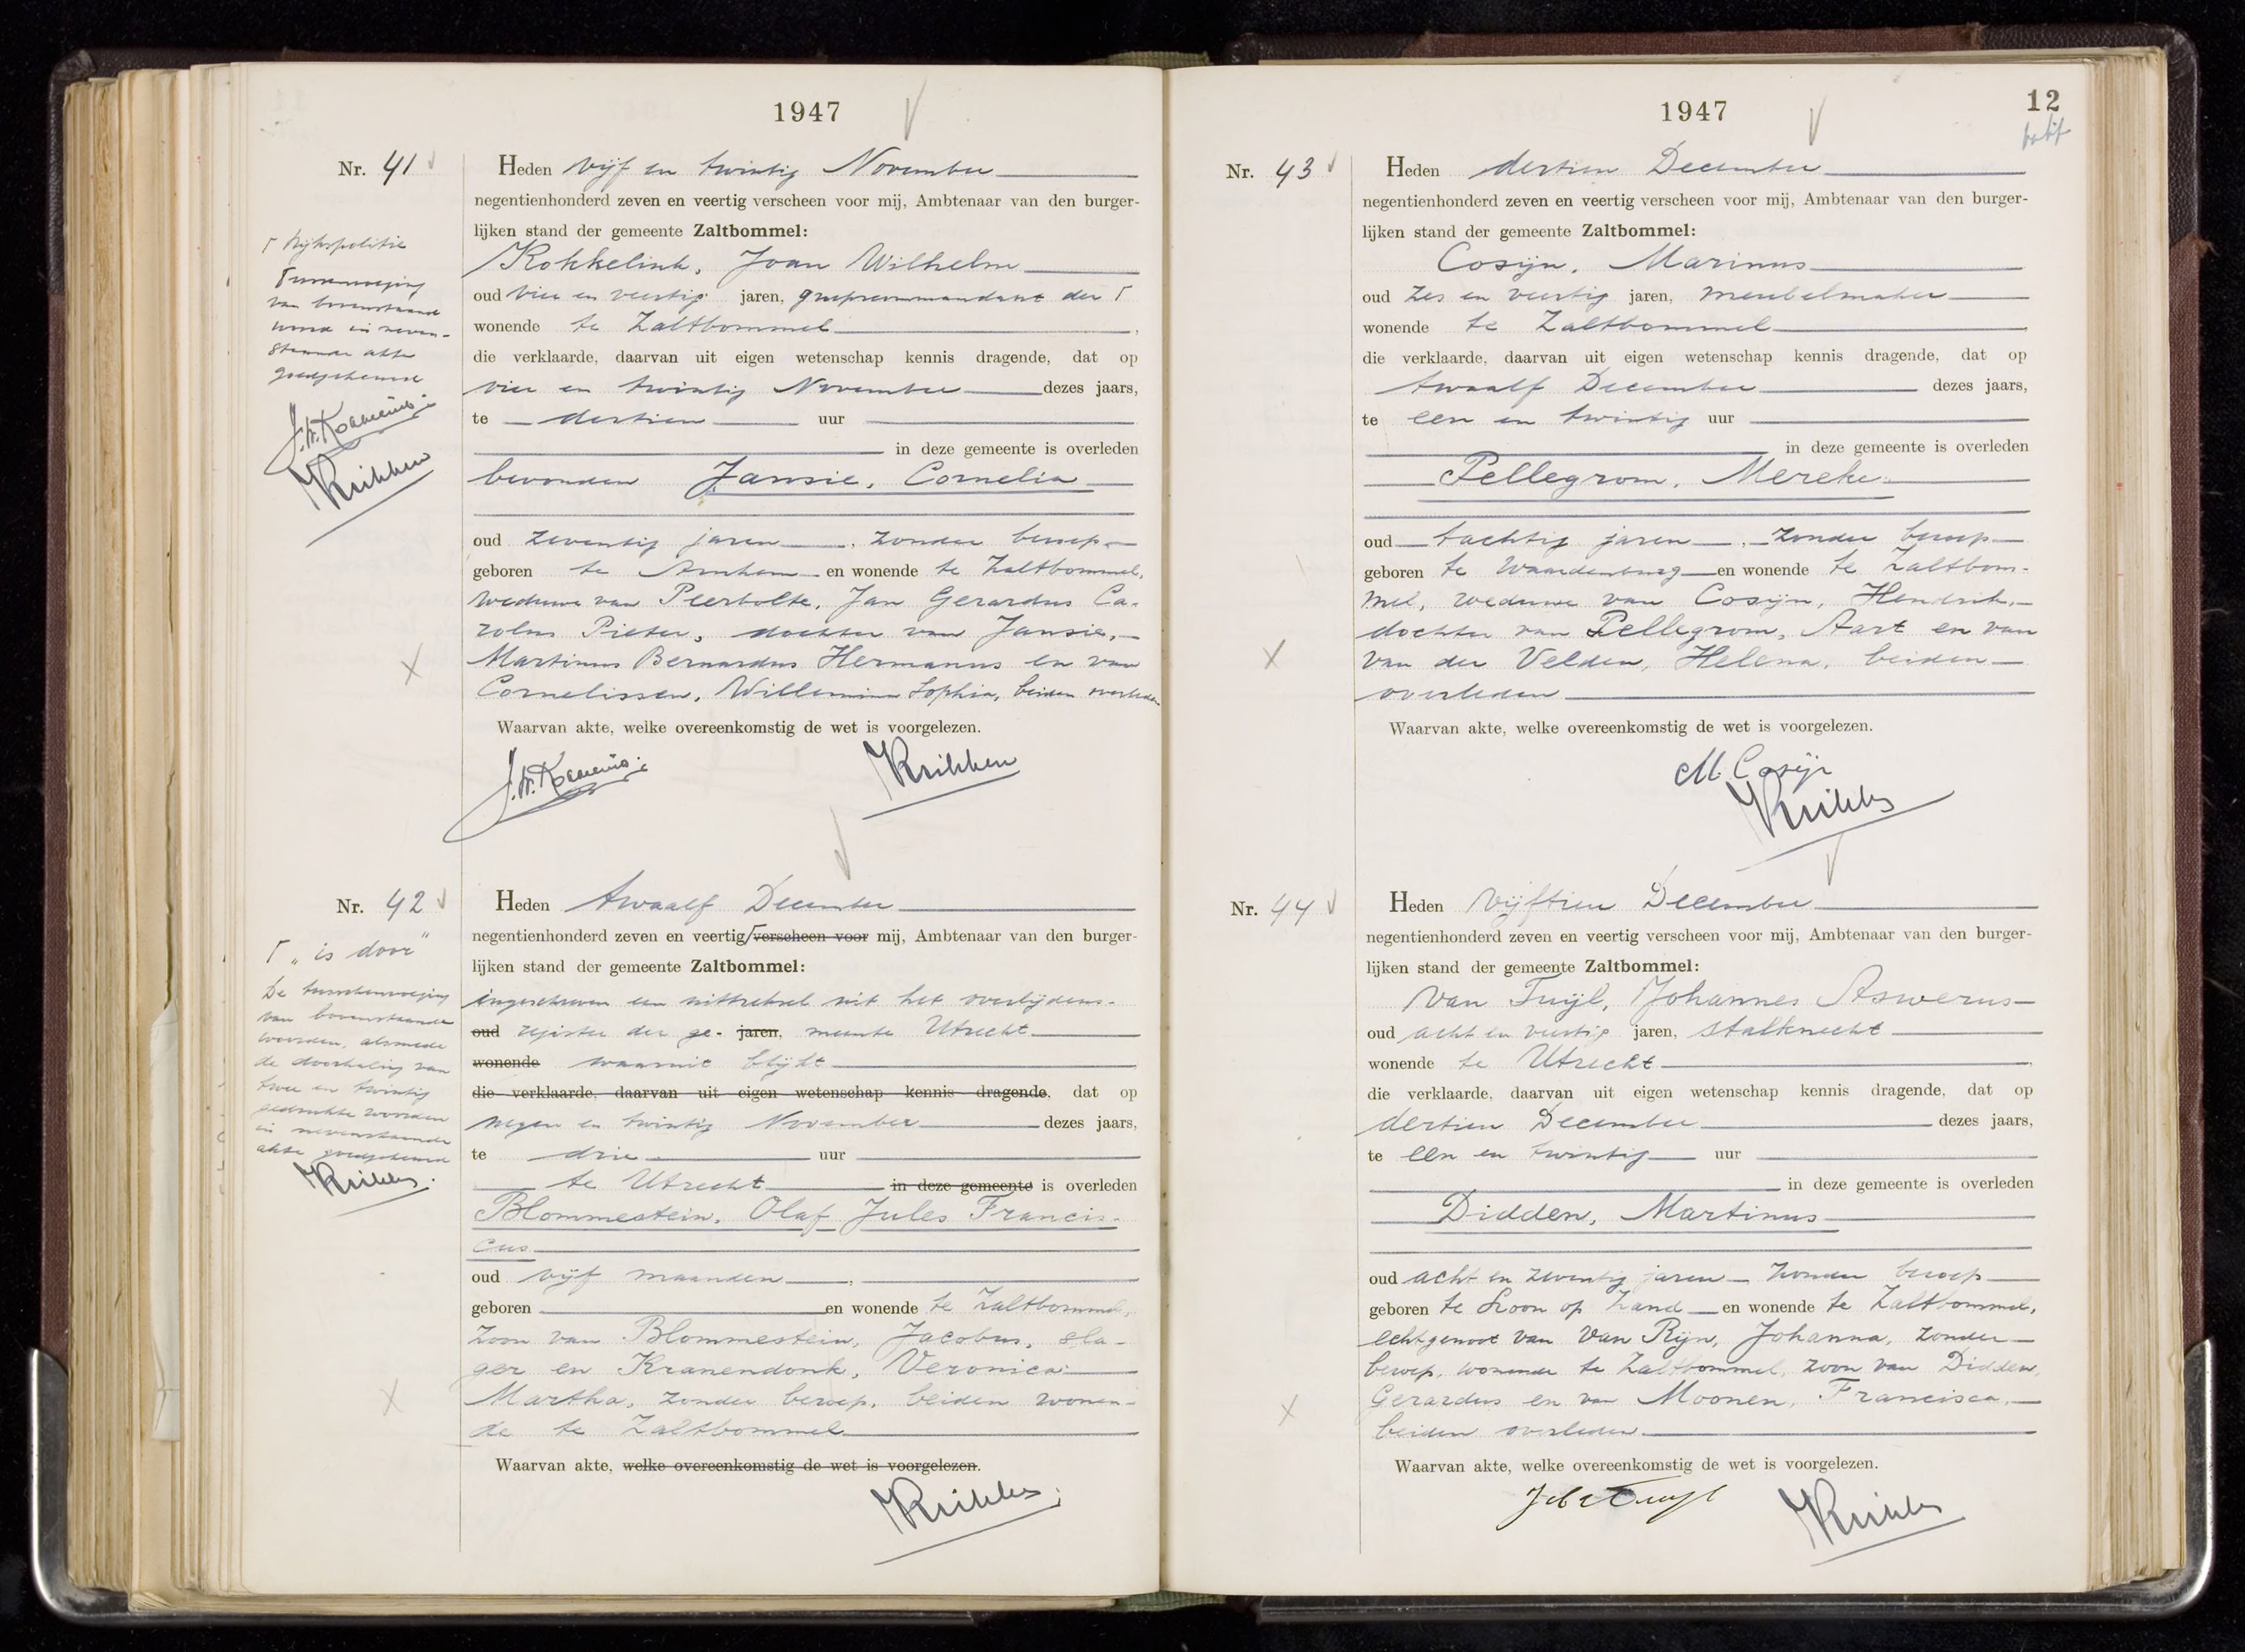 1947
Nr. 41
Heden vijf en twintig November
negentienhonderd zeven en veertig verscheen voor mij, Ambtenaar van den burger-
lijken stand der gemeente Zaltbommel:
Kokkelink, Joan Wilhelm
oud vier en veertig jaren, groepscommandant der Γ
wonende te Zaltbommel,
die verklaarde, daarvan uit eigen wetenschap kennis dragende, dat op
vier en twintig November dezes jaars,
te dertien uur
in deze gemeente is overleden
bevonden Jansie, Cornelia
oud zeventig jaren, zonder beroep
geboren te Arnhem en wonende te Zaltbommel,
weduwe van Peerbolte, Jan Gerardus Ca-
rolus Pieter, dochter van Jansie,
Martinus Bernardus Hermanus en van
Cornelissen, Willemina Sophia, beiden overleden
Waarvan akte, welke overeenkomstig de wet is voorgelezen.
Krikken
Γ Rijkspolitie
Tusschenvoeging
van bovenstaand
woord in neven-
staande akte
goedgekeurd
Krikken
Nr. 42
Heden twaalf December
negentienhonderd zeven en veertig Γ verscheen voor mij, Ambtenaar van den burger-
lijken stand der gemeente Zaltbommel:
ingeschreven een uittreksel uit het overlijdens-
oud register der ge- jaren, meente Utrecht
wonende waaruit blijkt
die verklaarde, daarvan uit eigen wetenschap kennis dragende, dat op
negen en twintig November dezes jaars,
te drie uur
te Utrecht in deze gemeente is overleden
Blommestein, Olaf Jules Francis-
cus
oud vijf maanden,
geboren en wonende te Zaltbommel,
zoon van Blommestein, Jacobus, sla-
ger en Kranendonk, Veronica
Martha, zonder beroep, beiden wonen-
de te Zaltbommel
Waarvan akte, welke overeenkomstig de wet is voorgelezen.
Krikken
Γ „ is door "
De tusschenvoeging
van bovenstaande
woorden, alsmede
de doorhaling van
twee en twintig
gedrukte woorden
in nevenstaande
akte goedgekeurd
Krikken
1947
12
Nr. 43
Heden dertien December
negentienhonderd zeven en veertig verscheen voor mij, Ambtenaar van den burger-
lijken stand der gemeente Zaltbommel:
Cosijn, Marinus
oud zes en veertig jaren, meubelmaker
wonende te Zaltbommel,
die verklaarde, daarvan uit eigen wetenschap kennis dragende, dat op
twaalf December dezes jaars,
te een en twintig uur
in deze gemeente is overleden
Pellegrom, Mereke
oud tachtig jaren, zonder beroep
geboren te Waardenburg en wonende te Zaltbom-
mel, weduwe van Cosijn, Hendrik,
dochter van Pellegrom, Aart en van
van der Velden, Helena, beiden
overleden
Waarvan akte, welke overeenkomstig de wet is voorgelezen.
M. Cosijn
Krikken
Nr. 44
Heden vijftien December
negentienhonderd zeven en veertig verscheen voor mij, Ambtenaar van den burger-
lijken stand der gemeente Zaltbommel:
van Tuijl, Johannes Aswerus
oud acht en veertig jaren, stalknecht
wonende te Utrecht,
die verklaarde, daarvan uit eigen wetenschap kennis dragende, dat op
dertien December dezes jaars,
te een en twintig uur
in deze gemeente is overleden
Didden, Martinus
oud acht en zeventig jaren zonder beroep
geboren te Loon op Zand en wonende te Zaltbommel,
echtgenoot van van Rijn, Johanna, zonder
beroep, wonende te Zaltbommel, zoon van Didden,
Gerardus en van Moonen, Francisca,
beiden overleden
Waarvan akte, welke overeenkomstig de wet is voorgelezen.
Krikken